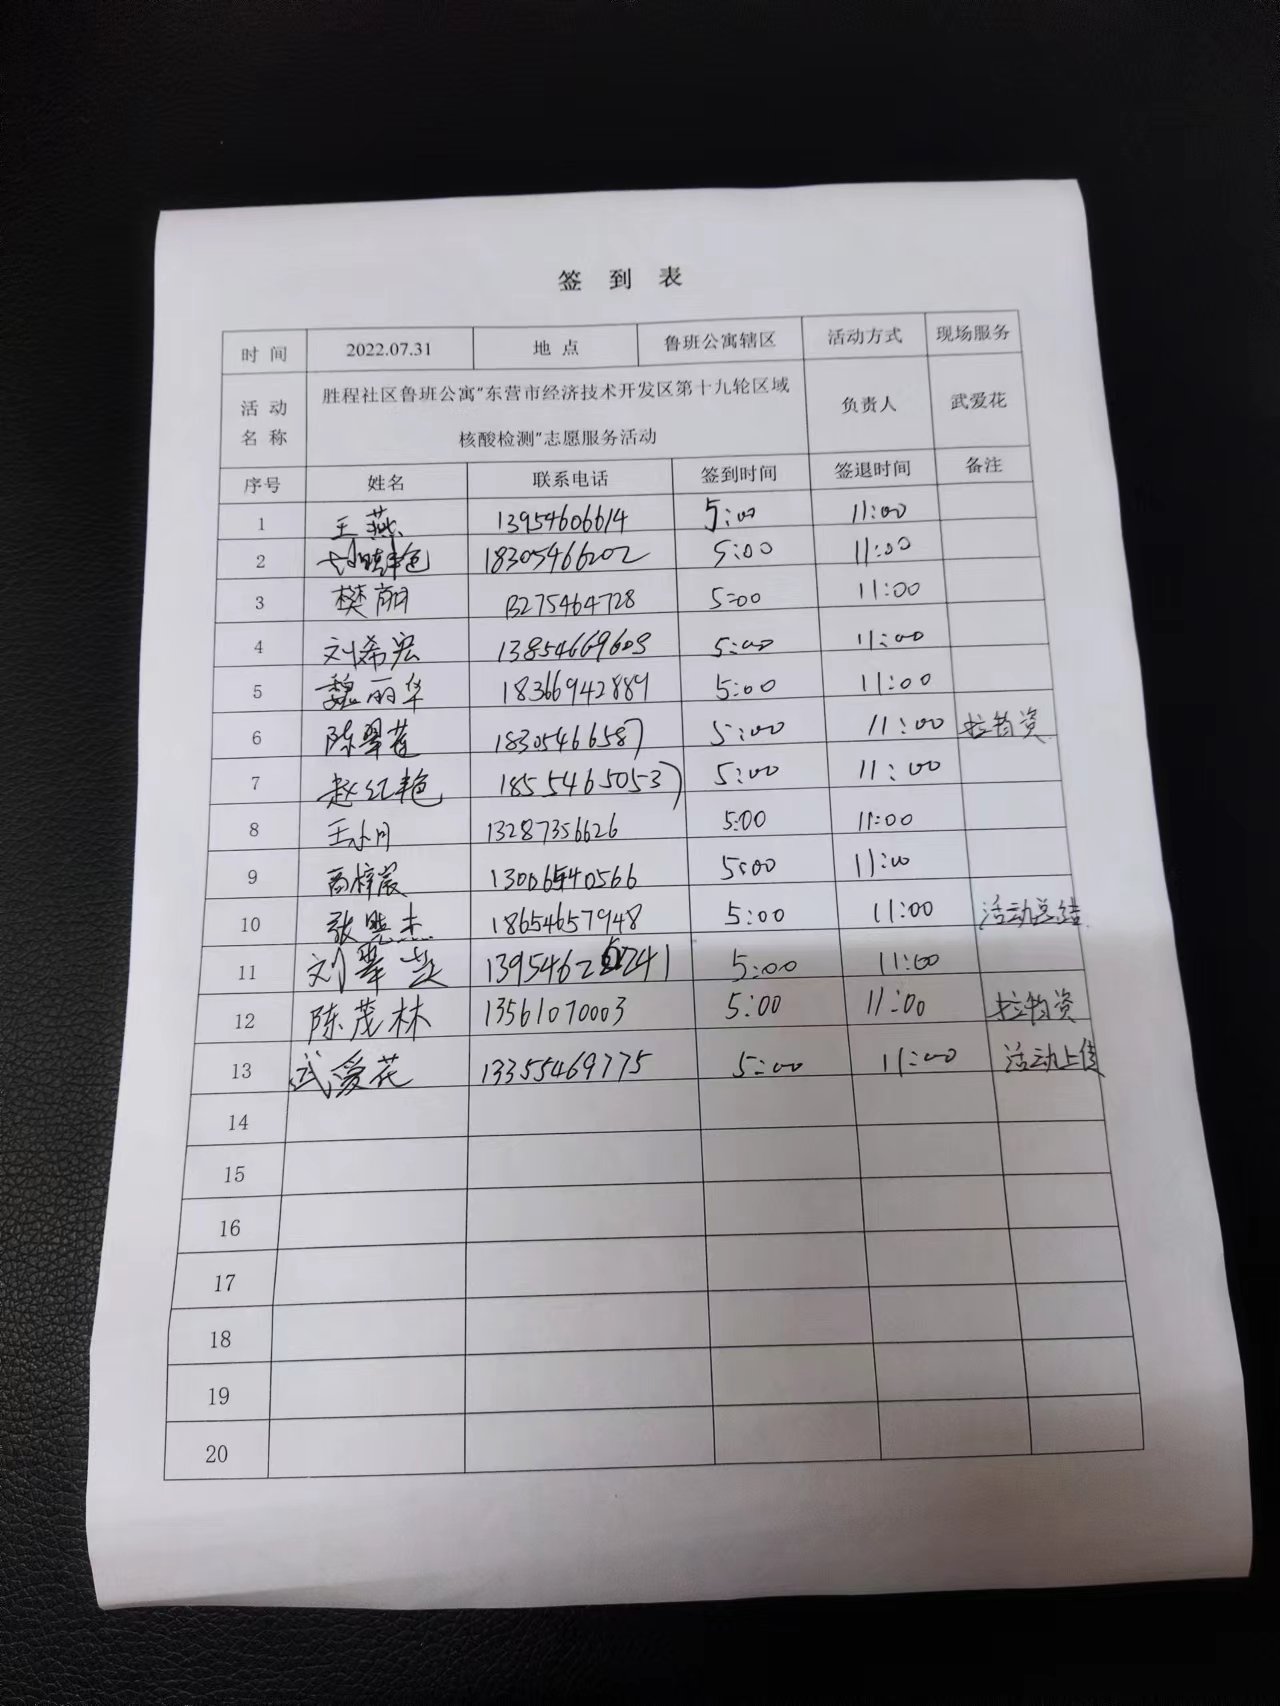 签 到 表
时 间 2022.07.31 地 点 鲁班公寓辖区 活动方式 现场服务
活 动 名 称 胜程社区鲁班公寓"东营市经济技术开发区第十九轮区域
核酸检测"志愿服务活动 负责人 武爱花
序号 姓名 联系电话 签到时间 签退时间 备注
1 王燕 13954606614 5:00 11:00
2 18305466202 5:00 11:00
3 樊丽 13275464728 5:00 11:00
4 刘希宏 13854669609 5:00 11:00
5 魏丽华 18366942889 5:00 11:00
6 陈翠莲 18305466587 5:00 11:00 拉物资
7 赵红艳 18554650537 5:00 11:00
8 王小月 13287356626 5:00 11:00
9 商梓宸 13006540566 5:00 11:00
10 张晓杰 18654657948 5:00 11:00 活动总结
11 刘翠芝 5:00 11:00
12 陈茂林 13561070003 5:00 11:00 拉物资
13 武爱花 13355469775 5:00 11:00 活动上传
14
15
16
17
18
19
20